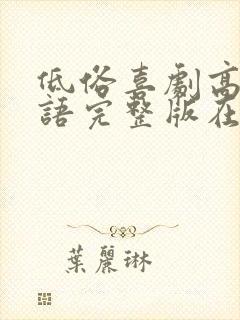 低俗喜劇高
語完整版在
葉麗琳